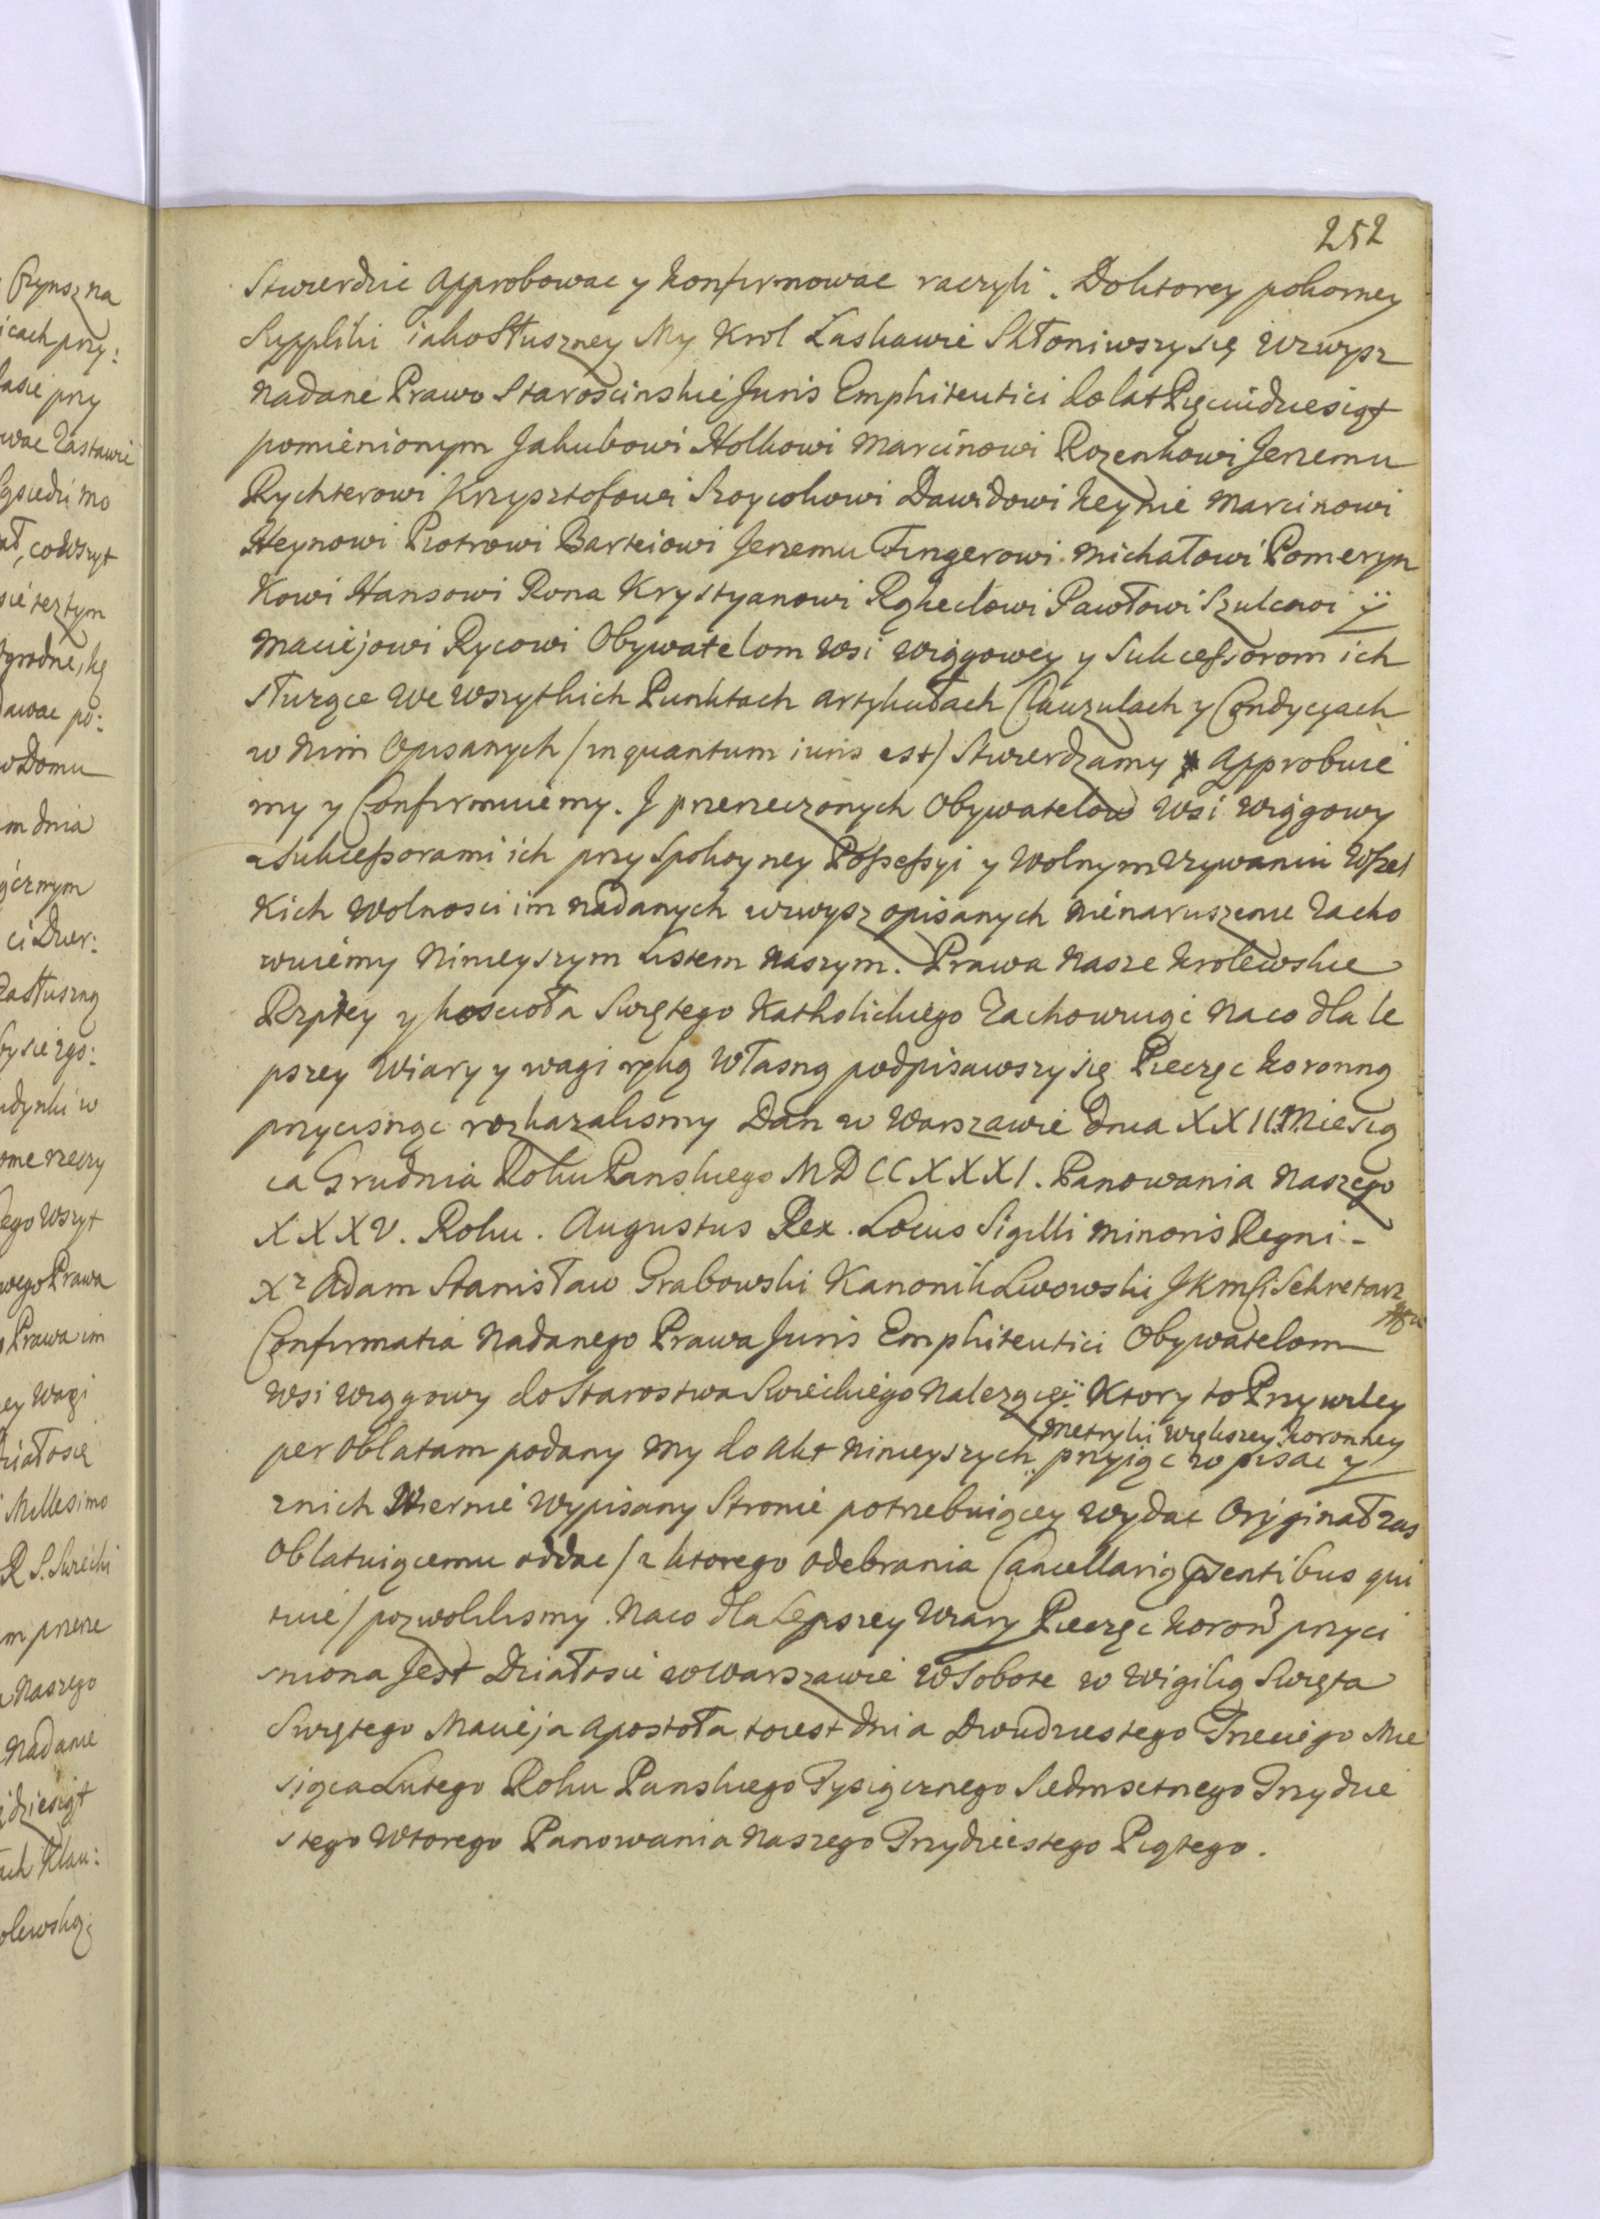 252
Stwierdzic Approbowac y konfirmowac raczyli. Do ktorey pokorney
Suppliki iako Słuszney My Krol Łaskawie Skłoniwszy się wzwysz
nadane Prawo Staroscinskie Juris Emphiteutici do lat Pięciudziesiąt
pomienionym Jakubowi Holkowi Marcinowi Rozenkowi Jerzemu
Rychterowi Krzysztofowi Szoycokowi Dawidowi Keynie Marcinowi
Heynowi Piotrowi Barteiowi Jerzemu Fingerowi Michałowi Pomeryn
kowi Hansowi Rona Krystyanowi Rąkeclowi Pawłowi Szulcowi ÿ
Maciejowi Rycowi Obywatelom wsi Wiąggowey y Sukcessorom ich
służące we wszytkich Punktach artykułach Clauzulach y Condycyach
w nim Opisanych /in quantum iuris est/ Stwierdzamy Approbuie
my y Confirmuiemy. J przerzeczonych Obywatelow wsi Wiąggowy
z Sukcessorami ich przy Spokoyney Possessyi y wolnym Vzywaniu Wszel
kich wolnosci im nadanych wzwysz opisanych nienaruszenie Zacho
wuiemy Ninieyszym Listem naszym. Prawa nasze krolewskie
Rzptey y koscioła Swiętego Katholickiego Zachowuiąc Na co dla le
pszey Wiary y wagi ręką własną podpisawszy się Pieczęc koronną
przycisnąc rozkazalismy Dan w Warszawie dnia XXII Miesią
ca Grudnia Roku Panskiego MDCCXXXI. Panowania Naszego
XXXV. Roku. Augustus Rex. Locus Sigilli minoris Regni -
Xz Adam Stanisław Grabowski Kanonik Lwowski JKmsci Sekretarz
Confirmatia Nadanego Prawa Juris Emphiteutici Obywatelom
wsi Wiąggowy do Starostwa Swieckiego Nalezącej. Ktory to Przywiley
Metryki większey koronney
per Oblatam podany my do Akt ninieyszych przyiąc w pisac y
z nich Wiernie wypisany Stronie potrzebuiącey wydac Oryginał zas
Oblatuiącemu oddac /z ktorego odebrania Cancellarią pzentibus qui
tuie/ pozwolilismy. Na co dla Lepszey Wiary Pieczęc koron przyci
sniona Jest Działo sie w Warszawie w Sobote w Wigilią Swięta
Swiętego Macieja Apostoła to iest dnia Dwudziestego Trzeciego Mie
siąca Lutego Roku Panskiego Tysiącznego Siedmsetnego Trzydzie
stego Wtorego Panowania Naszego Trzydziestego Piątego.